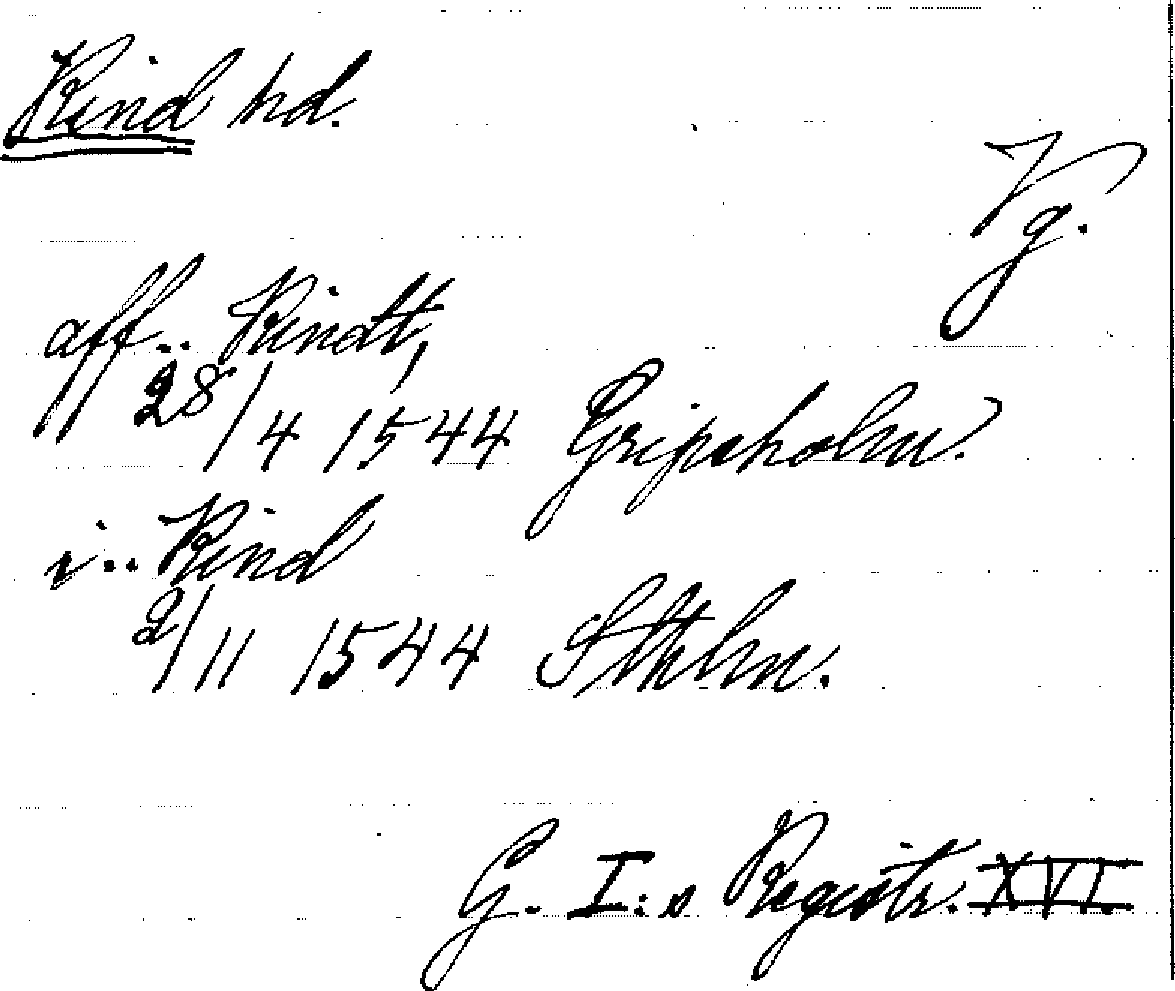 Kind hd.
Vg.
aff.. Kindt,
28/4 1544 Gripsholm.
i.. Kind
2/11 1544 Sthlm.
G. I:s Registr. XVI.